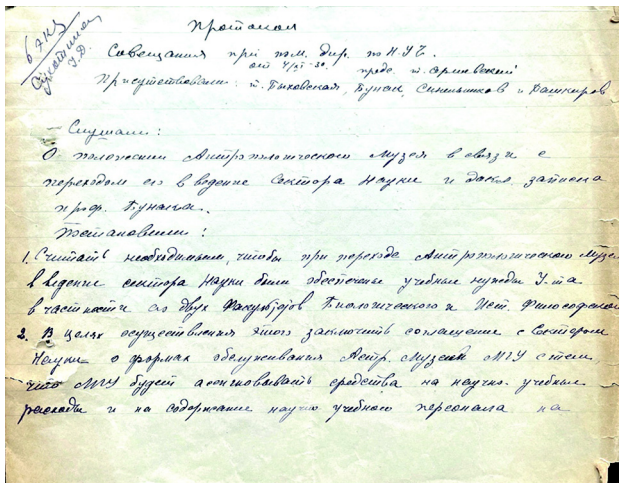 Протокол
Совещания при пом. дир. по НУЧ.
от 4/XI-30.
Присутствовали: т. Быковская, Бунак, Синельников и Башкиров
Слушали:
О положении Антропологического Музея в связи с
переходом его в ведение Сектора Науки и докл. записка
проф. Бунака.
Постановили:
1. Считать необходимым, чтобы при переходе Антропологического Музея
в ведение сектора Науки были обеспечены учебные нужды У-та
в частности его двух Факультетов Биологического и Ист. Философского
2. В целях осуществления этого заключить соглашение с Сектором
Науки о формах обслуживания Антр. Музеем МГУ с тем
что МГУ будет ассигновывать средства на научно-учебные
расходы и на содержание научно учебного персонала на